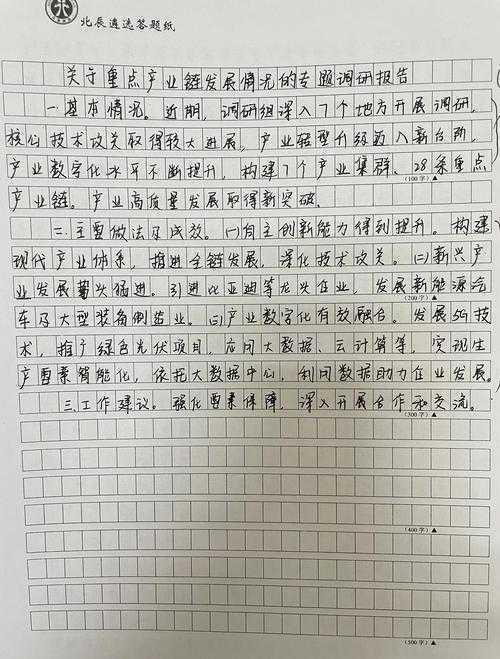 北辰遴选答题纸
关于重点产业链发展情况的专题调研报告
一.基本情况。近期,调研组深入7个地方开展调研,
核心技术攻关取得较大进展,产业转型升级迈入新台阶,
产业数字化水平不断提升,构建7个产业集群、28条重点
(100字)▲
产业链。产业高质量发展取得新突破.
二.主要做法及成效。(一)自主创新能力得到提升。构建
现代产业体系,推进全链发展,深化技术攻关。(二)新兴产
业发展势头猛进。引进比亚迪等龙头企业,发展新能源汽
(200字)▲
车及大型装备制造业。(三)产业数字化有效融合。发展5G技
术,推广绿色光伏项目,应用大数据、云计算等,实现生
产要素智能化,依托大数据中心,利用数据助力企业发展。
三.工作建议。强化要素保障,深入开展合作和交流。
(300字)▲
(400字)▲
(500字)▲